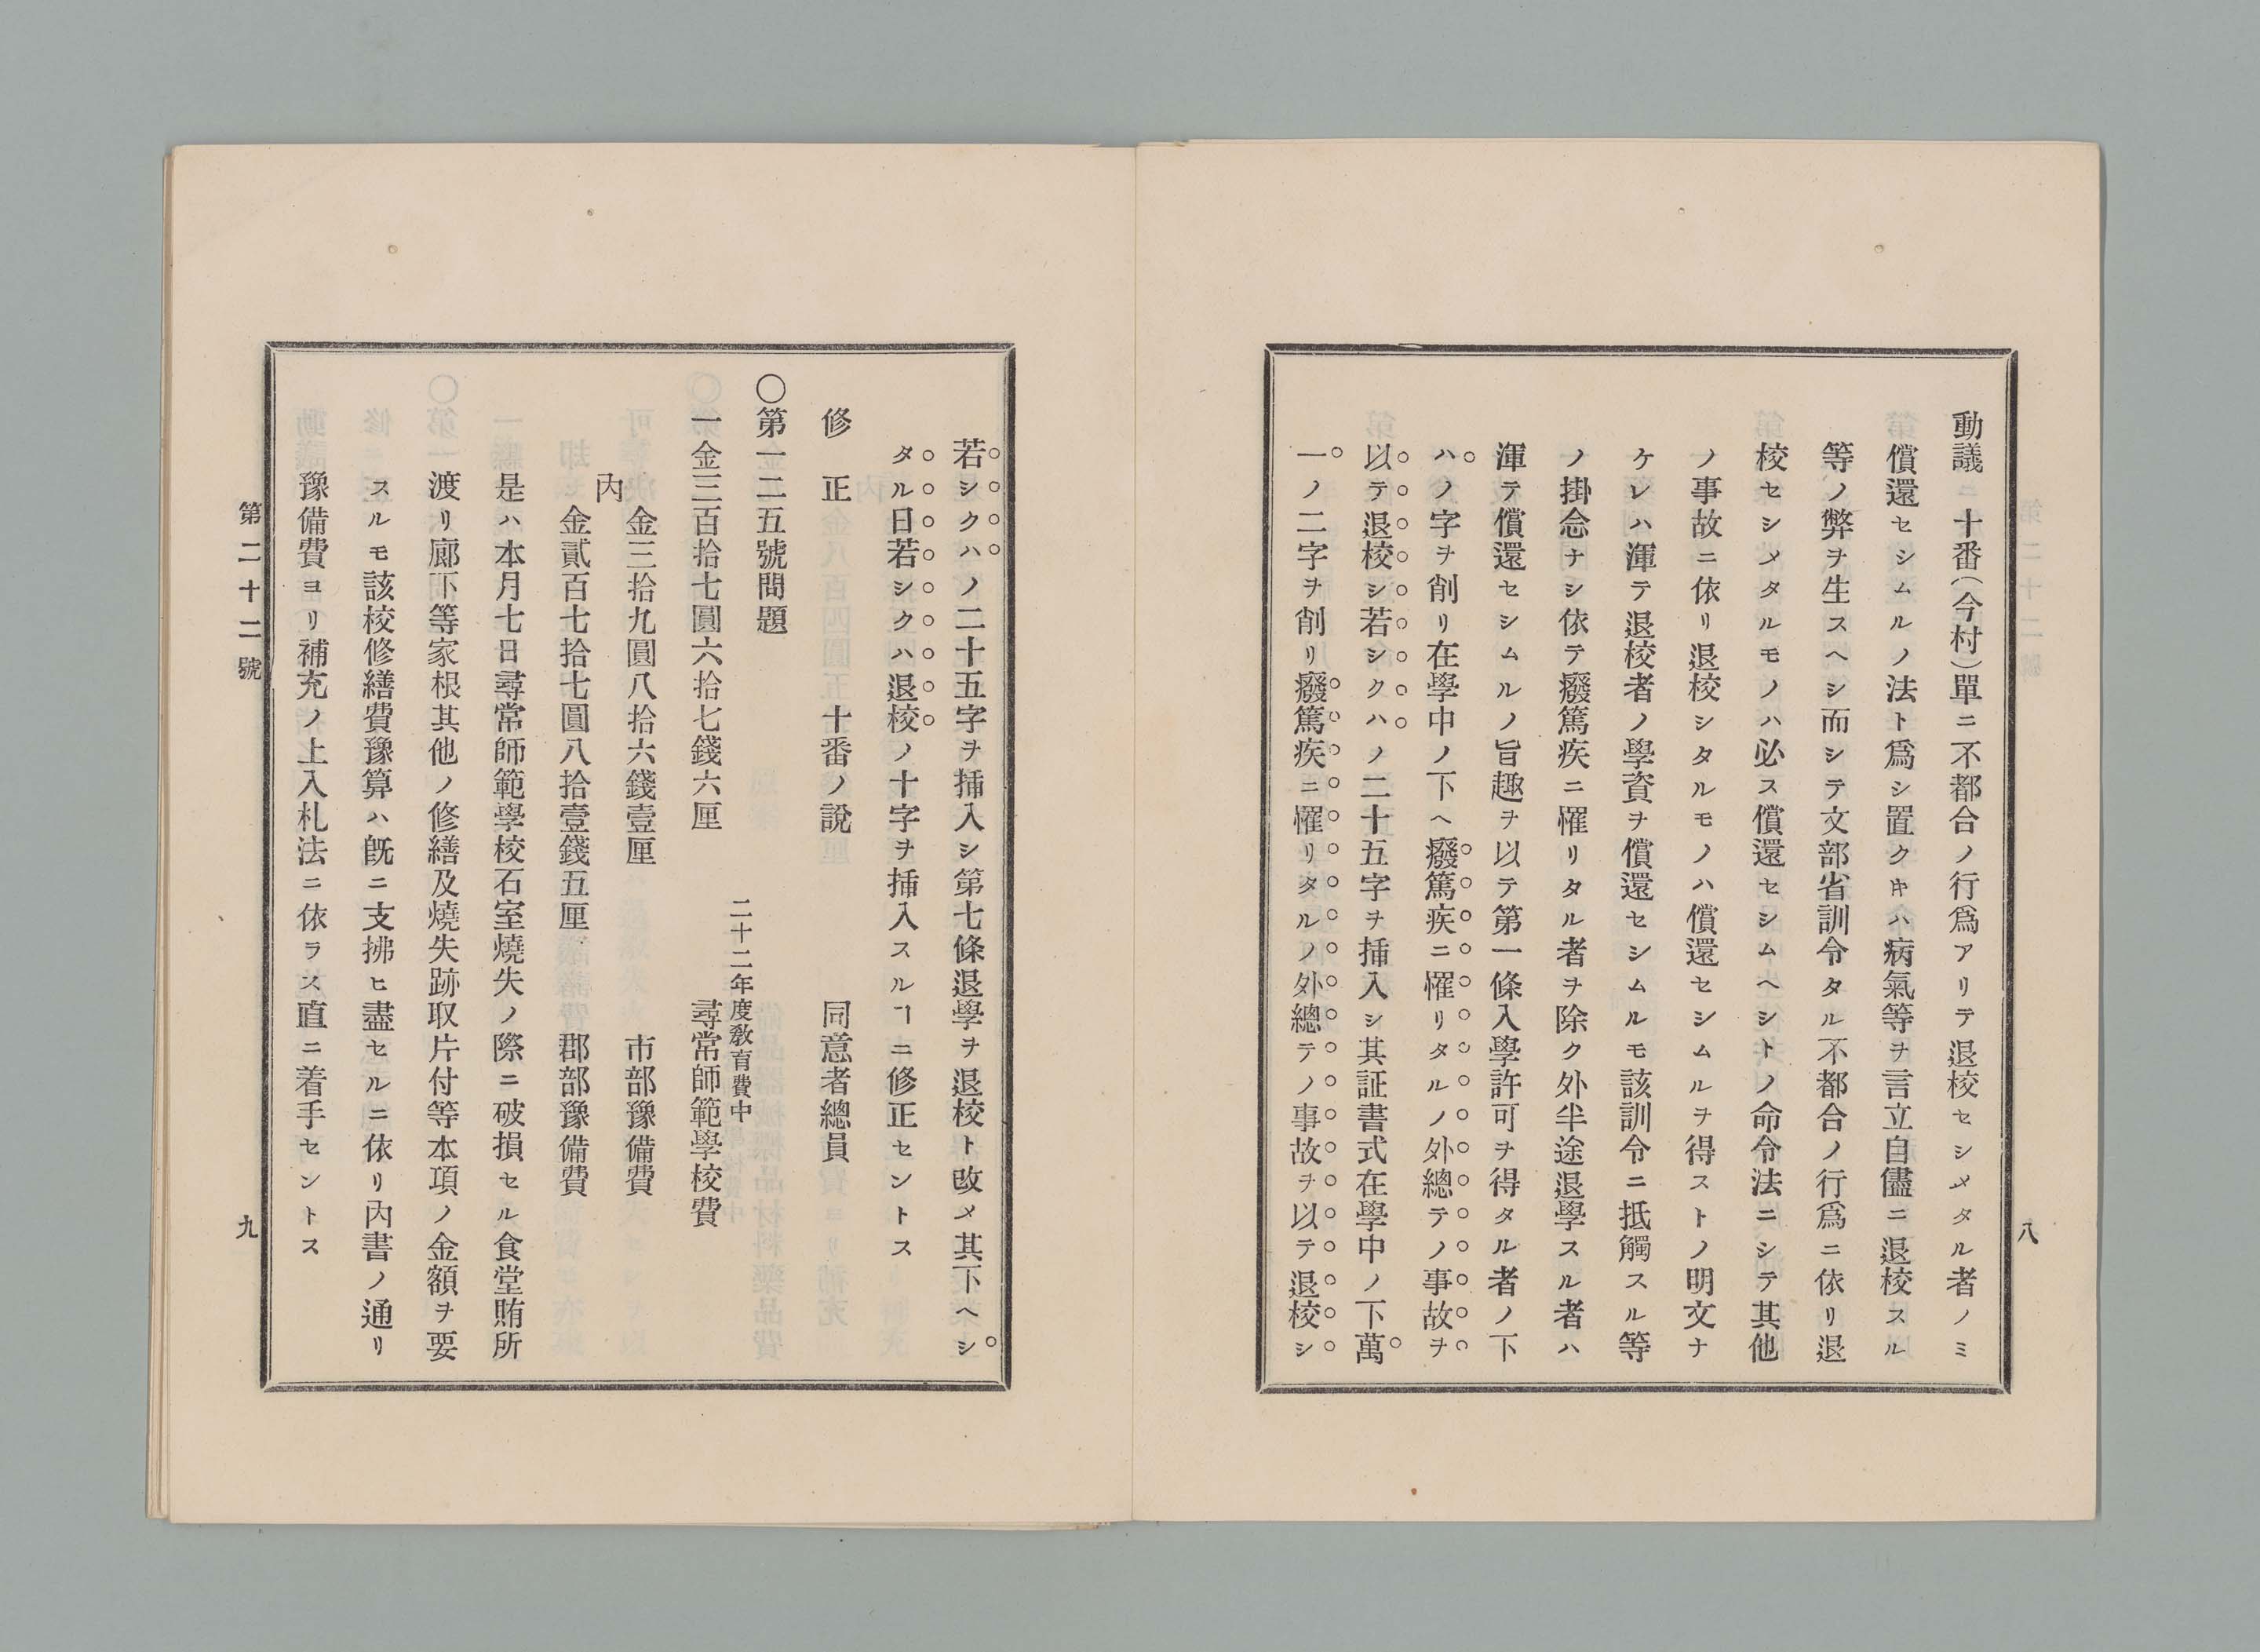 動議 十番(今村)單ニ不都合ノ行爲アリテ退校セシメタル者ノミ
償還セシムルノ法ト爲シ置クキハ病氣等ヲ言立自儘ニ退校スル
等ノ弊ヲ生スヘシ而シテ文部省訓令タル不都合ノ行爲ニ依リ退
校セシメタルモノハ必ス償還セシムヘシトノ命令法ニシテ其他
ノ事故ニ依リ退校シタルモノハ償還セシムルヲ得ストノ明文ナ
ケレハ渾テ退校者ノ學資ヲ償還セシムルモ該訓令ニ抵觸スル等
ノ掛念ナシ依テ癈篤疾ニ罹リタル者ヲ除ク外半途退學スル者ハ
渾テ償還セシムルノ旨趣ヲ以テ第一條入學許可ヲ得タル者ノ下
ハノ字ヲ削リ在學中ノ下ヘ癈篤疾ニ罹リタルノ外總テノ事故ヲ
以テ退校シ若シクハノ二十五字ヲ挿入シ其証書式在學中ノ下萬
一ノ二字ヲ削リ癈篤疾ニ罹リタルノ外總テノ事故ヲ以テ退校シ
八
若シクハノ二十五字ヲ挿入シ第七條退學ヲ退校ト改メ其下ヘシ
タル日若シクハ退校ノ十字ヲ挿入スルヿニ修正セントス
修 正 十番ノ說 同意者總員
〇第一二五號問題
二十二年度敎育費中
一金三百拾七圓六拾七錢六厘 尋常師範學校費
金三拾九圓八拾六錢壹厘 市部豫備費
內
金貳百七拾七圓八拾壹錢五厘 郡部豫備費
是ハ本月七日尋常師範學校石室燒失ノ際ニ破損セル食堂賄所
渡リ廊下等家根其他ノ修繕及燒失跡取片付等本項ノ金額ヲ要
スルモ該校修繕費豫算ハ旣ニ支拂ヒ盡セルニ依リ內書ノ通リ
豫備費ヨリ補充ノ上入札法ニ依ラス直ニ着手セントス
第二十二號
九